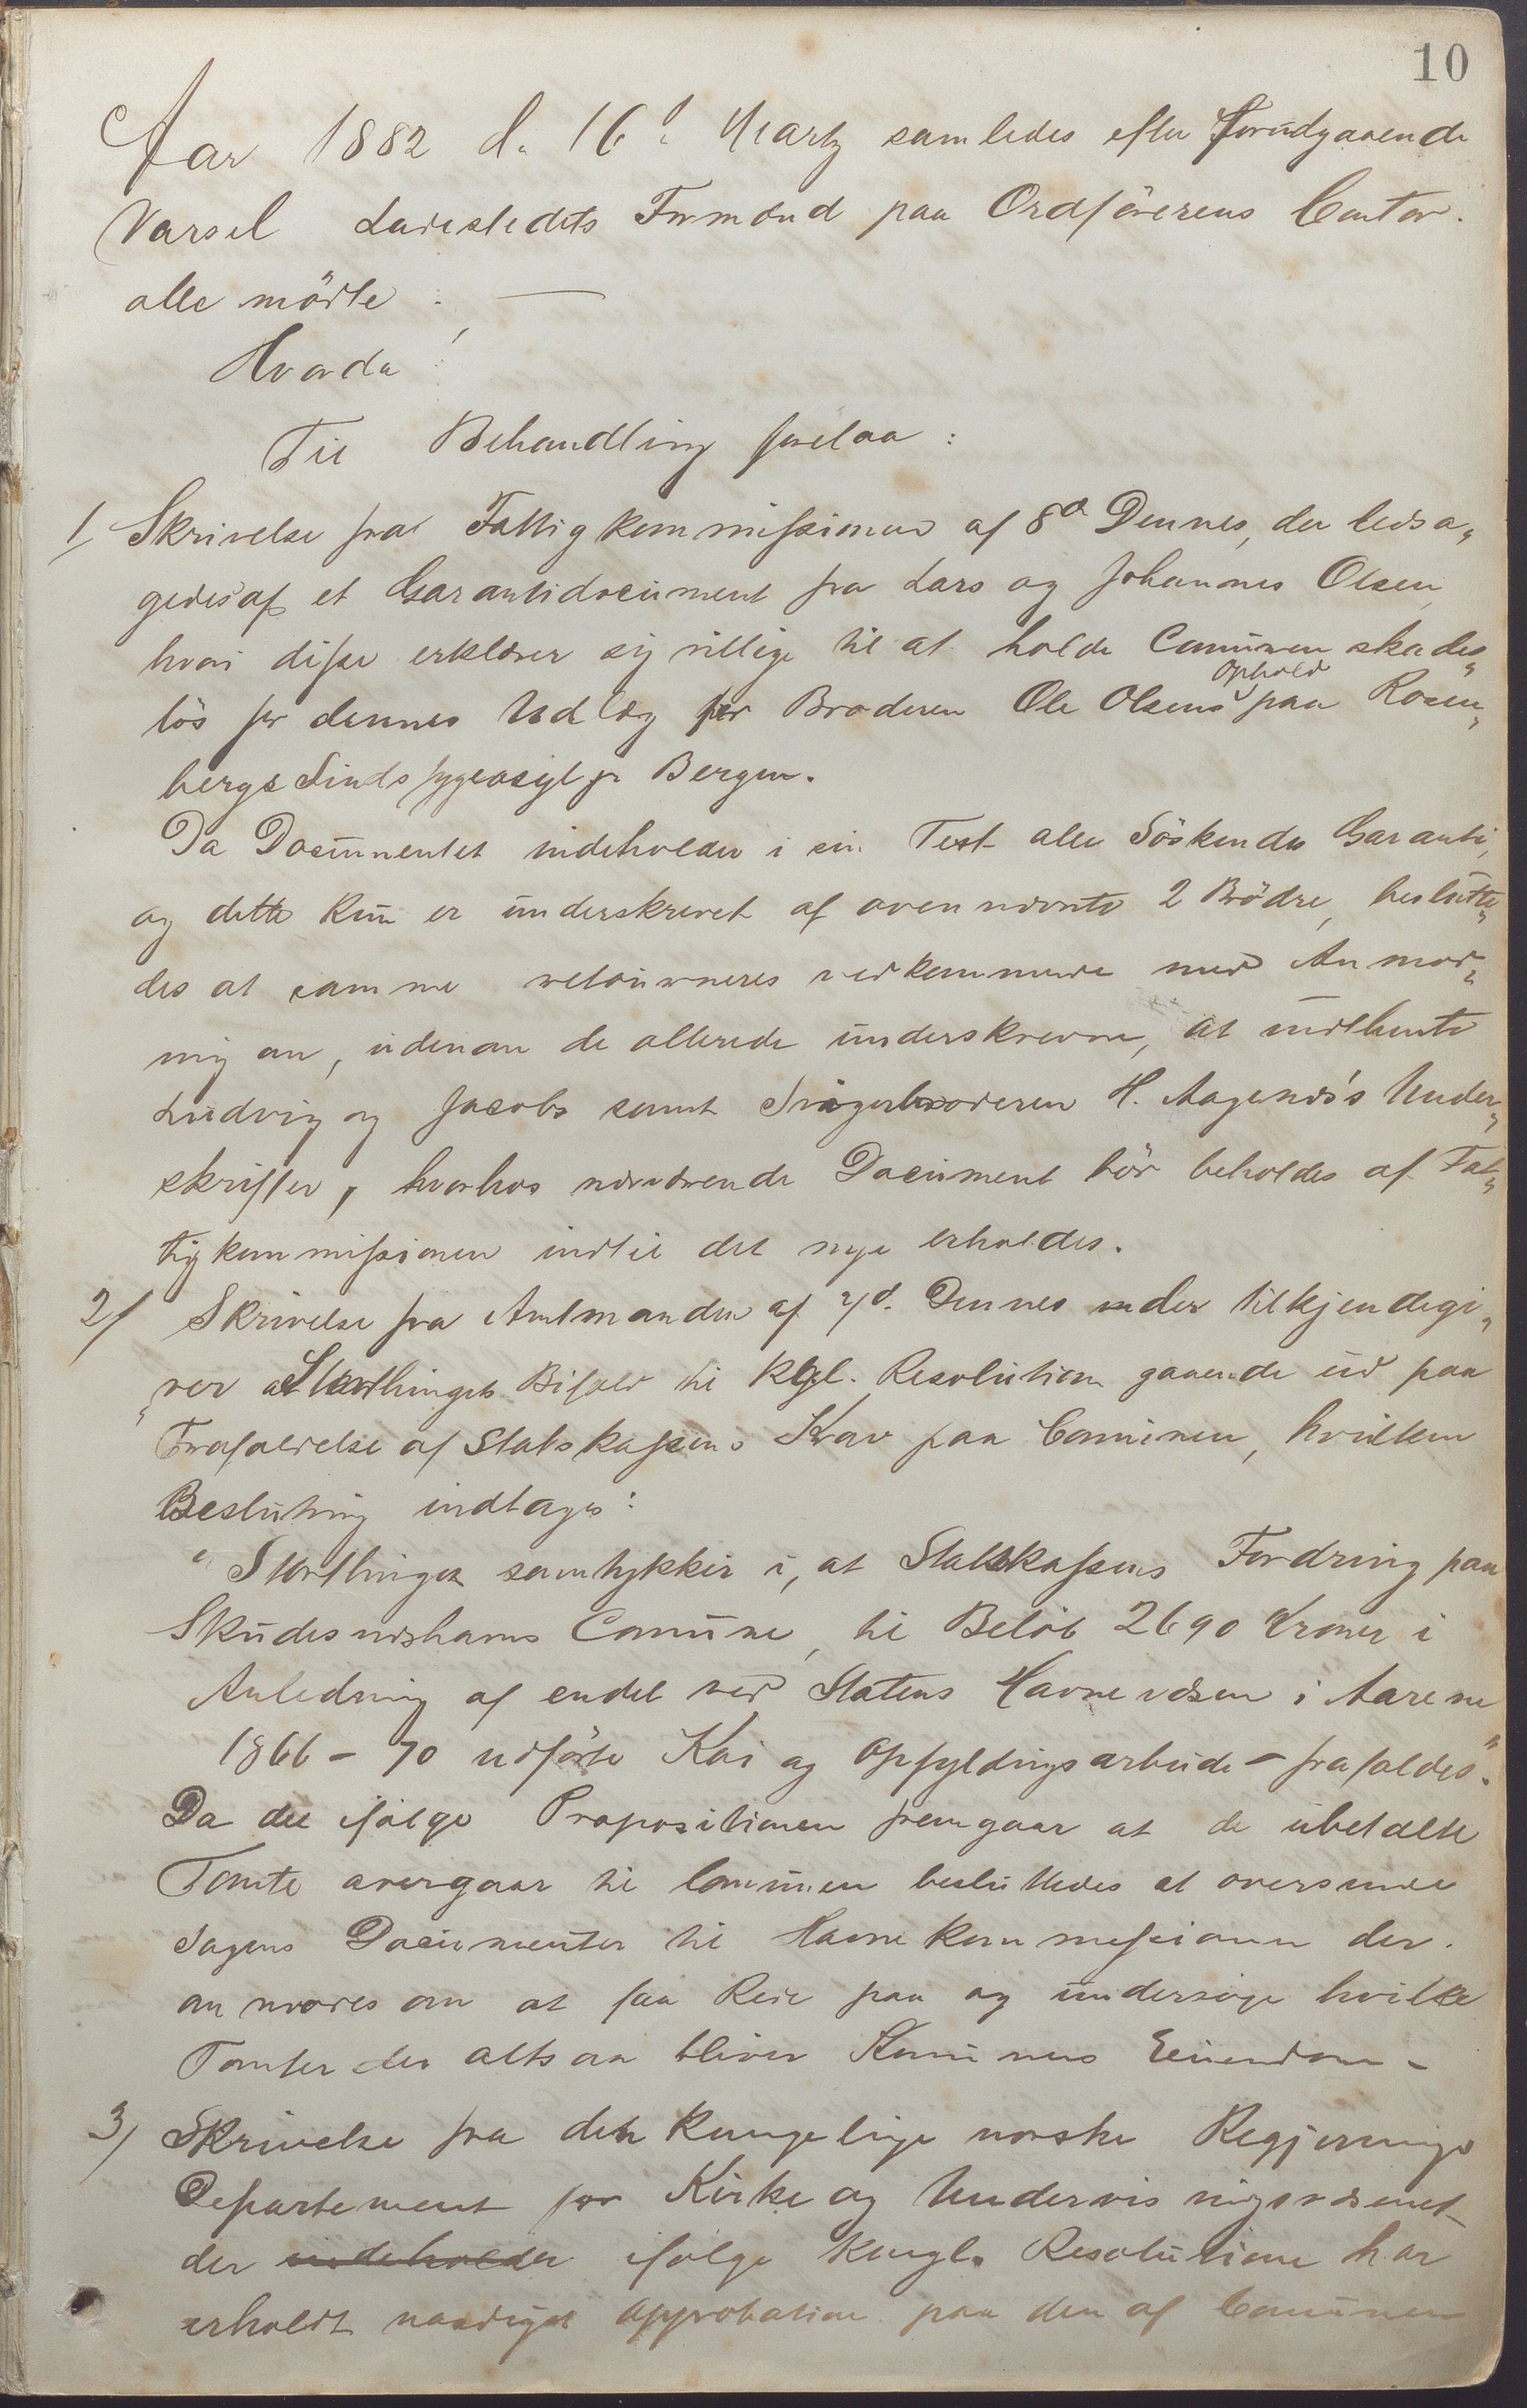 10
Aar 1882 d. 16d. Martz samledes efter forudgaaende
Varsel Ladestedets Formænd paa Ordförerens Contor.
alle mödte.
Hvorda!
Til Behandling forelaa:
1/ Skrivelse fra Fattigkommissionen af 8d Dennes, der ledsa„
gedes af et Garantidocument fra Lars og Johannes Olsen,
hvori disse erklærer sig villige til at holde Comunen skades„
lös for dennes Udlæg for Broderen Ole Olsens Ophold paa Rosen„
bergs Sindssygeasyl pr Bergen.
Da Documentet indeholder i sin Text alle Söskendes Garanti,
og dette kun er underskrevet af ovennævnte 2 Brödre, beslutte„
des at samme retourneres vedkommende med Anmod„
ning om, udenom de allerede underskrevne, at indhente
Ludvig og Jacobs samt Svogerbroderen H. Aagenæs's Under„
skrifter, hvorhos nærværende Document bör beholdes af Fat„
tigkommissionen indtil det nye erholdes.
2/ Skrivelse fra Amtmanden af 7d. Dennes der tilkjendegi„
„ver at Storthingets Bifald til kgl. Resolution gaaende ud paa
Frafaldelse af Statskassens Krav paa Comunen, hvilken
Beslutning indtages:
"Storthinget samtykker i, at Statskassens Fordring paa
Skudesnæshavns Comune, til Belöb 2690 Kroner i
Anledning af endel ved Statens Havnevæsen i Aarene
1866 - 70 udförte Kai og Opfyldningsarbeide - frafaldes".
Da det ifölge Propositionen fremgaar at de ubetalte
Tomte overgaar til Comunen besluttedes at oversende
Sagens Documenter til Havnekommissionen der
anmodes om at faa Rede paa og undersöge hvilke
Tomter der altsaa bliver Komunens Eiendom -
3/ Skrivelse fra det kongelige norske Regjerings
Departement for Kirke og Undervisningsvæsenet
der indeholder ifölge kongl. Resolution har
erholdt naadigst Approbation paa den af Comunen